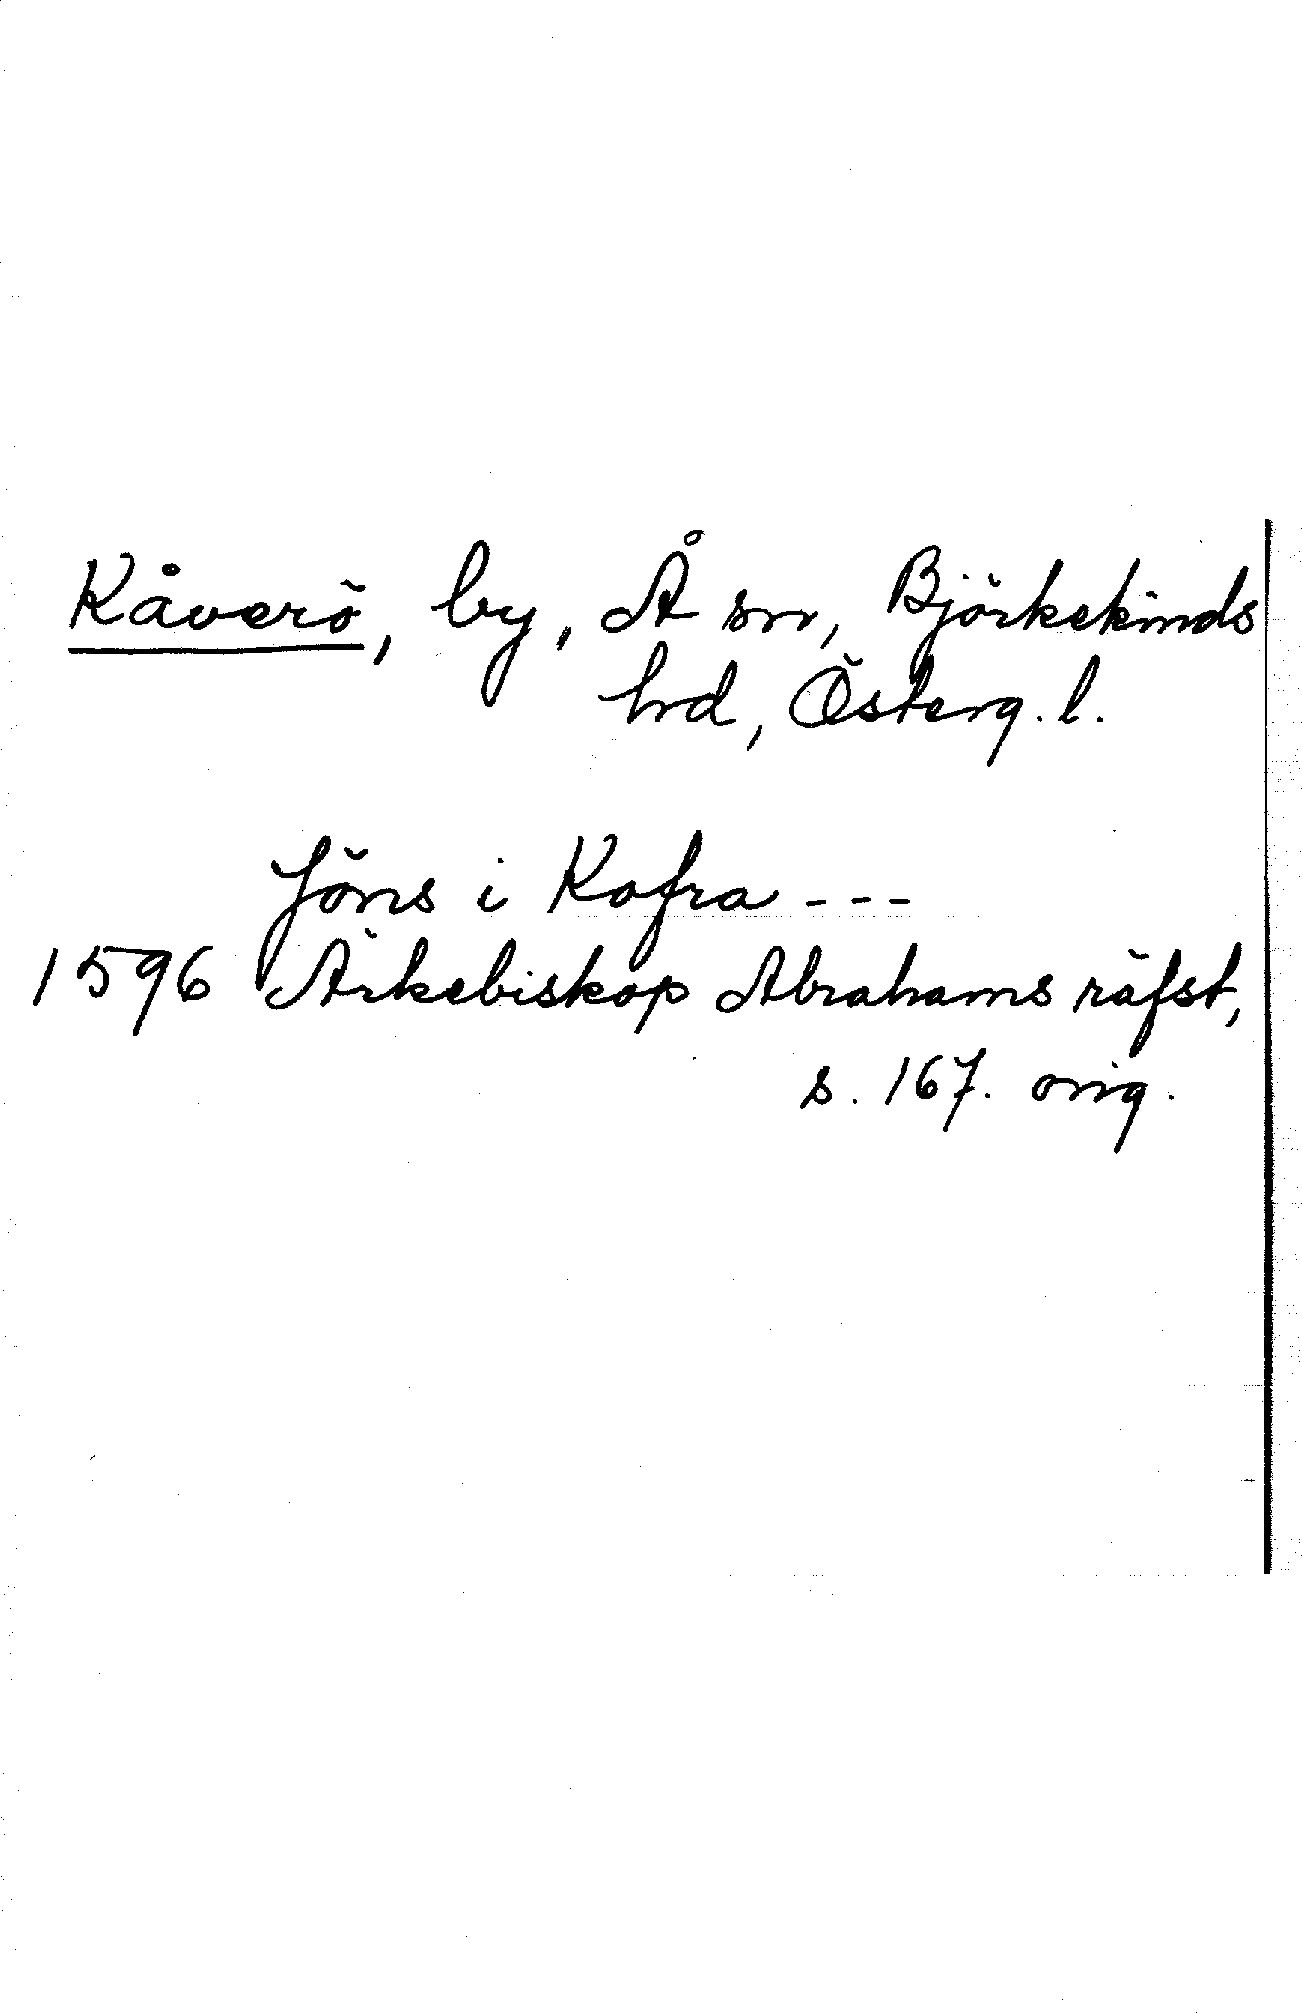 Kåverö, by, Å sn, Björkekinds
hrd, Österg. l.
Jöns i Kofra ---
1596 Ärkebiskop Abrahams räfst,
s. 167. orig.